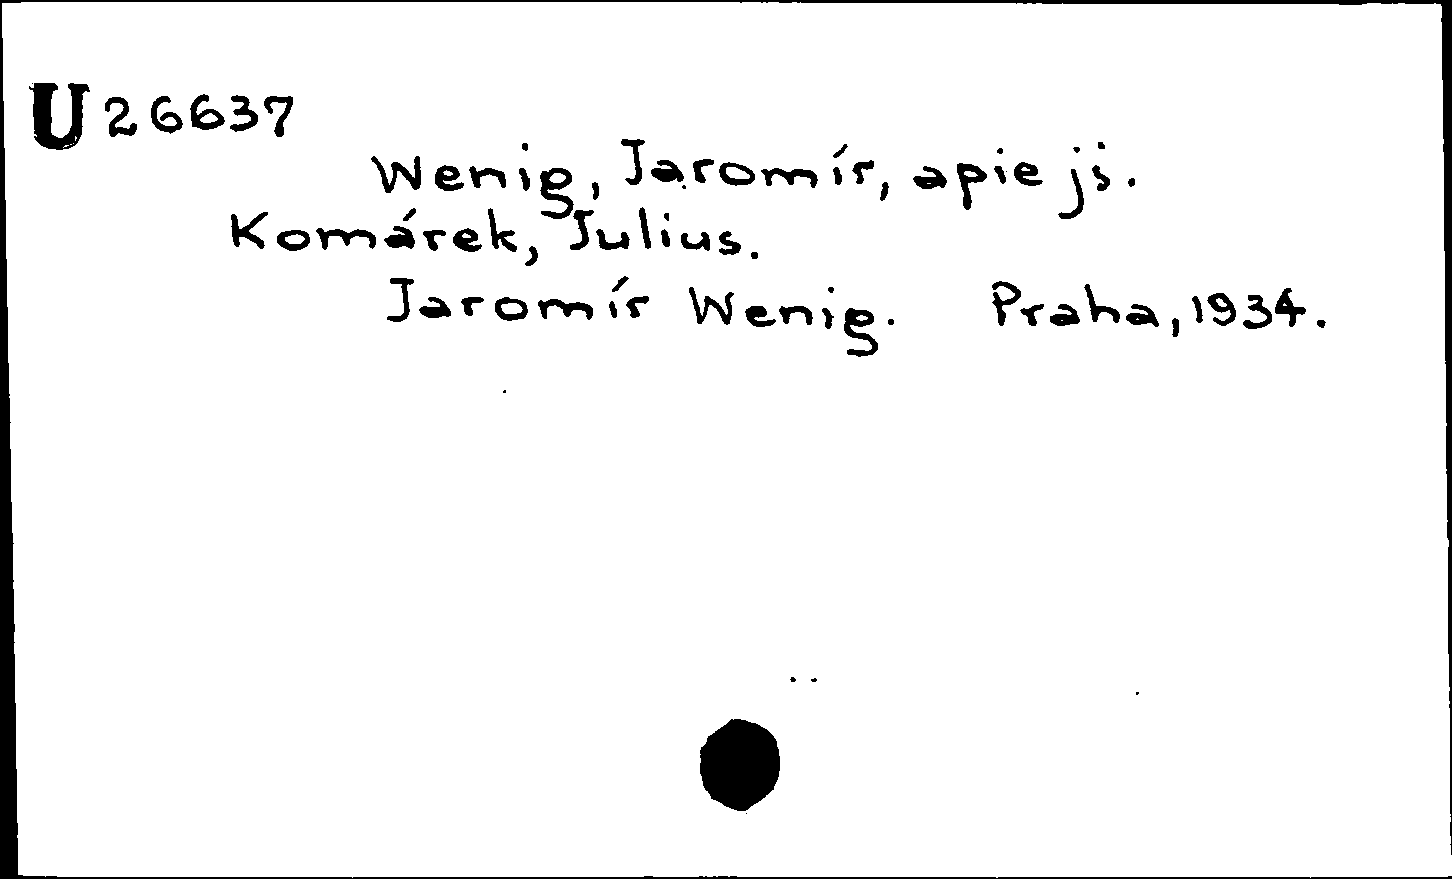 U 26637
Wenig, Jaromír, apie jį.
Komárek, Julius.
Jaromír Wenig. Praha, 1934.